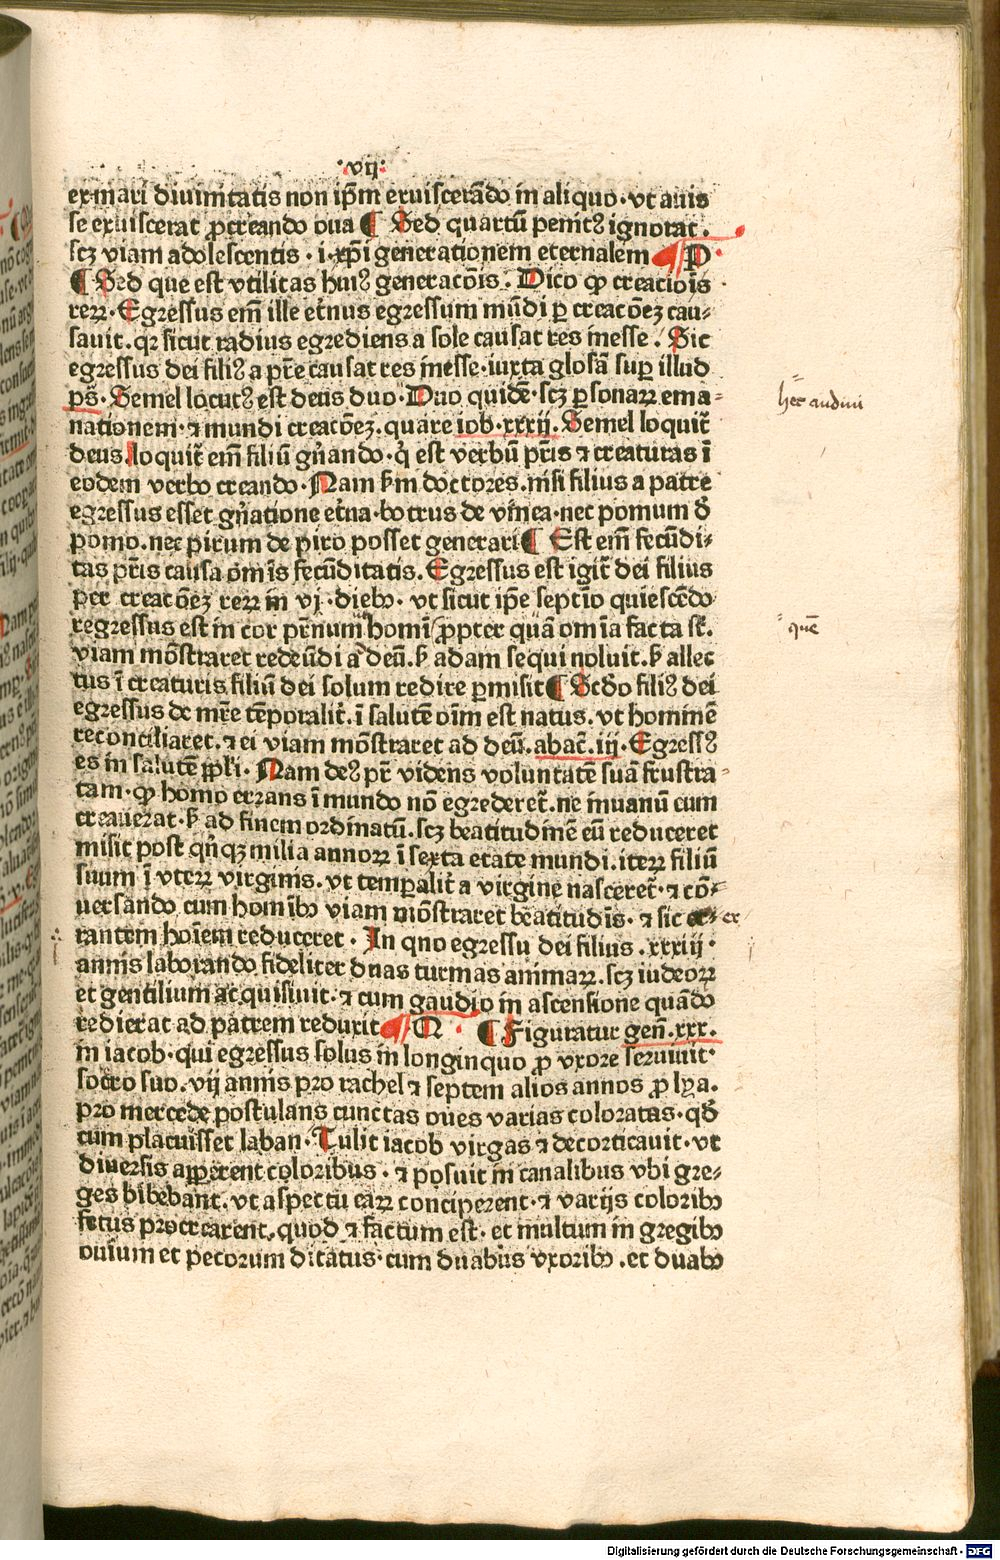 ·vij·
ex mari diuinitatis non ip̄m exuiscerādo in aliquo·vt auis
se exuiscerat ꝓcreando oua ¶ Sed quartū penitꝰ ignorat.
scꝫ viam adolescentis·i·xp̄i generationem eternalem ¶ P
¶ Sed que est vtilitas huiꝰ generacōis. Dico ꝙ creatiōis
reꝝ·Egressus em̄ ille et̄nus egressum mūdi ꝑ creacōeꝫ cau⸗
sauit.qꝛ sicut radius egrediens a sole causat res inesse. Sic
egressus dei filiꝰ a pr̄e causat res inesse·iuxta glosam suꝑ illud
ps̄·Semel locutꝰ est deus duo·Duo quidē·scꝫ ꝑsonaꝝ ema⸗
hec audiui
nationem·⁊ mundi creacōeꝫ.quare iob·xxxij.Semel loquit̄
deus.loquit̄ em̄ filiū gn̄ando·q̇ est verbū pr̄is ⁊ creaturas ī
eodem verbo creando·Nam ẜm doctores.nisi filius a patre
egressus esset gn̄atione et̄na·botrus de vinea·nec pomum ꝺ̄
pomo.nec pirum de piro posset generari ¶ Est em̄ fecūdi⸗
tas pr̄is causa om̄is fecūditatis.Egressus est igit̄ dei filius
per creacōeꝫ reꝝ in vj·diebꝰ·vt sicut ip̄e septīo quiescēdo
regressus est in cor pr̄num homī ꝓpter quā om̄ia facta st̄.
quē
viam mōstraret redeūdi ad deū.ẜ adam sequi noluit.ẜ allec
tus ī creaturis filiū dei solum redire ꝑmisit ¶ Scd̄o filiꝰ dei
egressus de mr̄e tēporalit̄.ī salutē oīm est natus.vt hominē
reconciliaret.⁊ ei viam mōstraret ad deū.abac̄.iij·Egressꝰ
es in salutē ppl̄i·Nam deꝰ pr̄ videns voluntatē suā frustra⸗
tam·ꝙ homo errans ī mundo nō egrederet̄.ne inuanū eum
creauerat·ẜ ad finem ordinatū.scꝫ beatitudinē eū reduceret
misit post qn̄qꝫ milia annoꝝ ī sexta etate mundi.iteꝝ filiū
suum ī vteꝝ virginis.vt temꝑalit̄ a virgine nasceret̄·⁊ cō⸗
uersando cum hominibꝰ viam mōstraret beatitudīs·⁊ sic er⸗ er
rantem hoīem reduceret·In qno egressu dei filius.xxxiij·
annis laborando fideliter duas turmas animaꝝ.scꝫ iudeoꝝ
et gentilium acquisiuit·⁊ cum gaudio in ascensione quādo
redierat ad patrem reduxit ¶ M ¶ Figuratur gen̄.xxx.
in iacob·qui egressus solus in longinquo ꝓ vxore seruiuit·
socro suo.vij annis pro rachel ⁊ septem alios annos ꝓ lya.
pro mercede postulans cunctas oues varias coloratas·qd̄
cum placuisset laban·Tulit iacob virgas ⁊ decorticauit·vt
diuersis apꝑerent coloribus·⁊ posuit in canalibus vbi gre⸗
ges bibebant.vt aspectu eaꝝ conciperent·⁊ varijs coloribꝰ
fetus procrearent,quod ⁊ factum est·et multum in gregibꝰ
ouium et pecorum ditatus·cum duabus vxoribꝰ.et duabꝰ
Digitalisierung gefördert durch die Deutsche Forschungsgemeinschaft - DFG